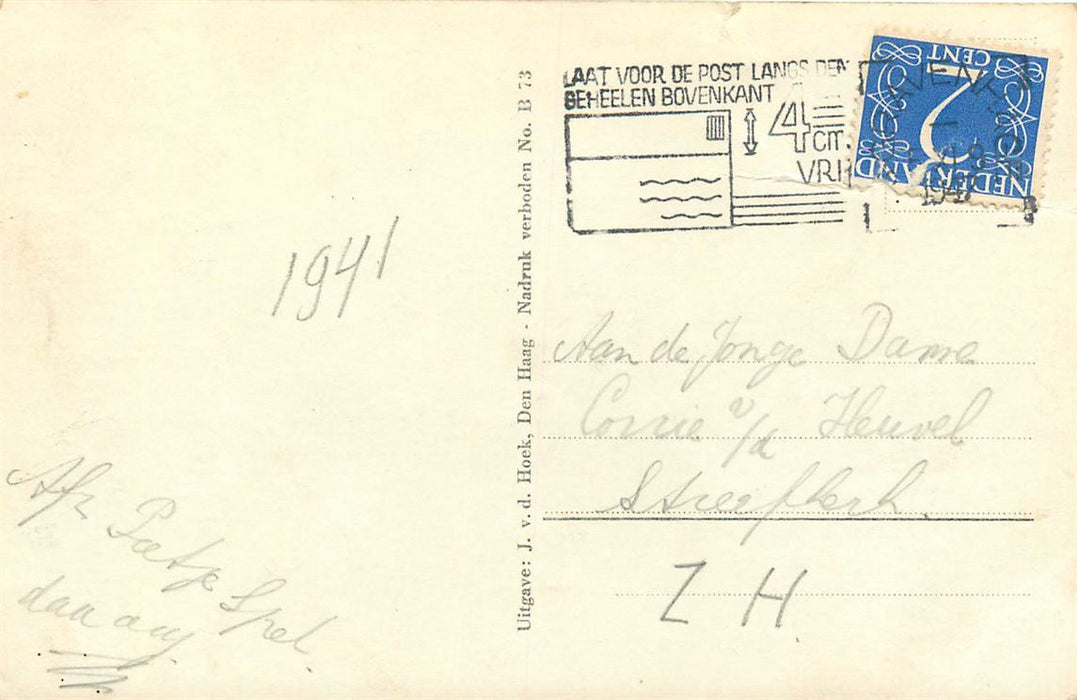 LAAT VOOR DE POST LANGS DEN
GEHEELEN BOVENKANT
4
CM.
VRIJ
CENT
2
NEDERLAND
1941
Uitgave: J. v. d. Hoek, Den Haag - Nadruk verboden No. B 73
Aan de Jonge Dame
Corrie v/d Heuvel
Streefkerk.
Z H.
Afz Pietje Spel.